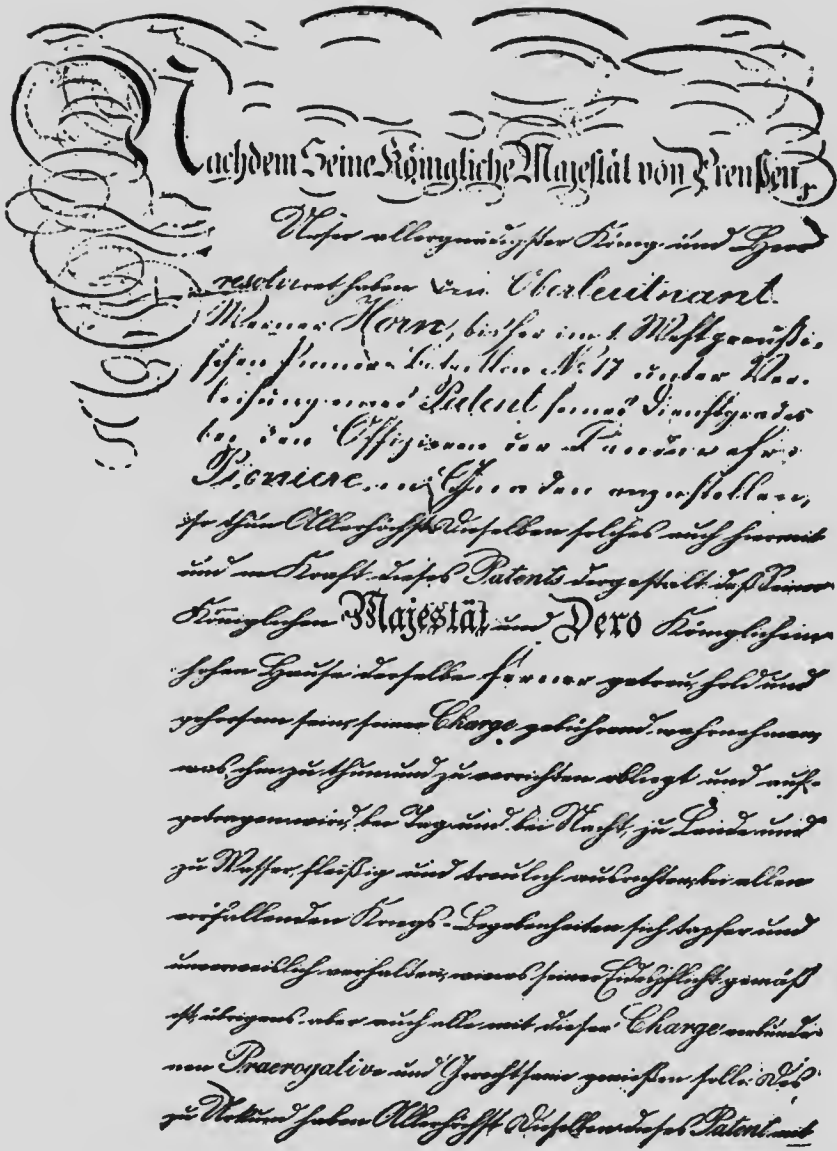 Nachdem Seine Königliche Majestät von Preußen,
Unser allergnädigster König und Herr
resolviret haben den Oberleutnant
Werner Horn, bisher im 1. Westpreußi-
schen Pionier-Bataillon No 17 unter Ver-
leihung eines Patent seines Dienstgrades
bei den Offizieren der Landwehr-
Pioniere in Gnaden anzustellen,
so thun Allerhöchst Dieselben solches auch hiermit
und in Kraft dieses Patents dergestalt daß Seiner
Königlichen Majestät und Dero Königlichem
hohen Hause derselbe ferner getreu, hold und
gehorsam sein, seiner Charge gebührend wahrnehmen,
was ihm zu thun und zu verrichten obliegt und auf-
getragen wird, bei Tag und bei Nacht, zu Lande und
zu Wasser, fleißig und treulich ausrichten, bei allen
vorfallenden Kriegs-Begebenheiten sich tapfer und
unverweislich verhalten, wie es seiner Eidespflicht gemäß
ist, übrigens aber auch alle mit dieser Charge verbunde-
nen Praerogative und Gerechtsame genießen solle. Des
zu Urkund haben Allerhöchst Dieselben dieses Patent mit